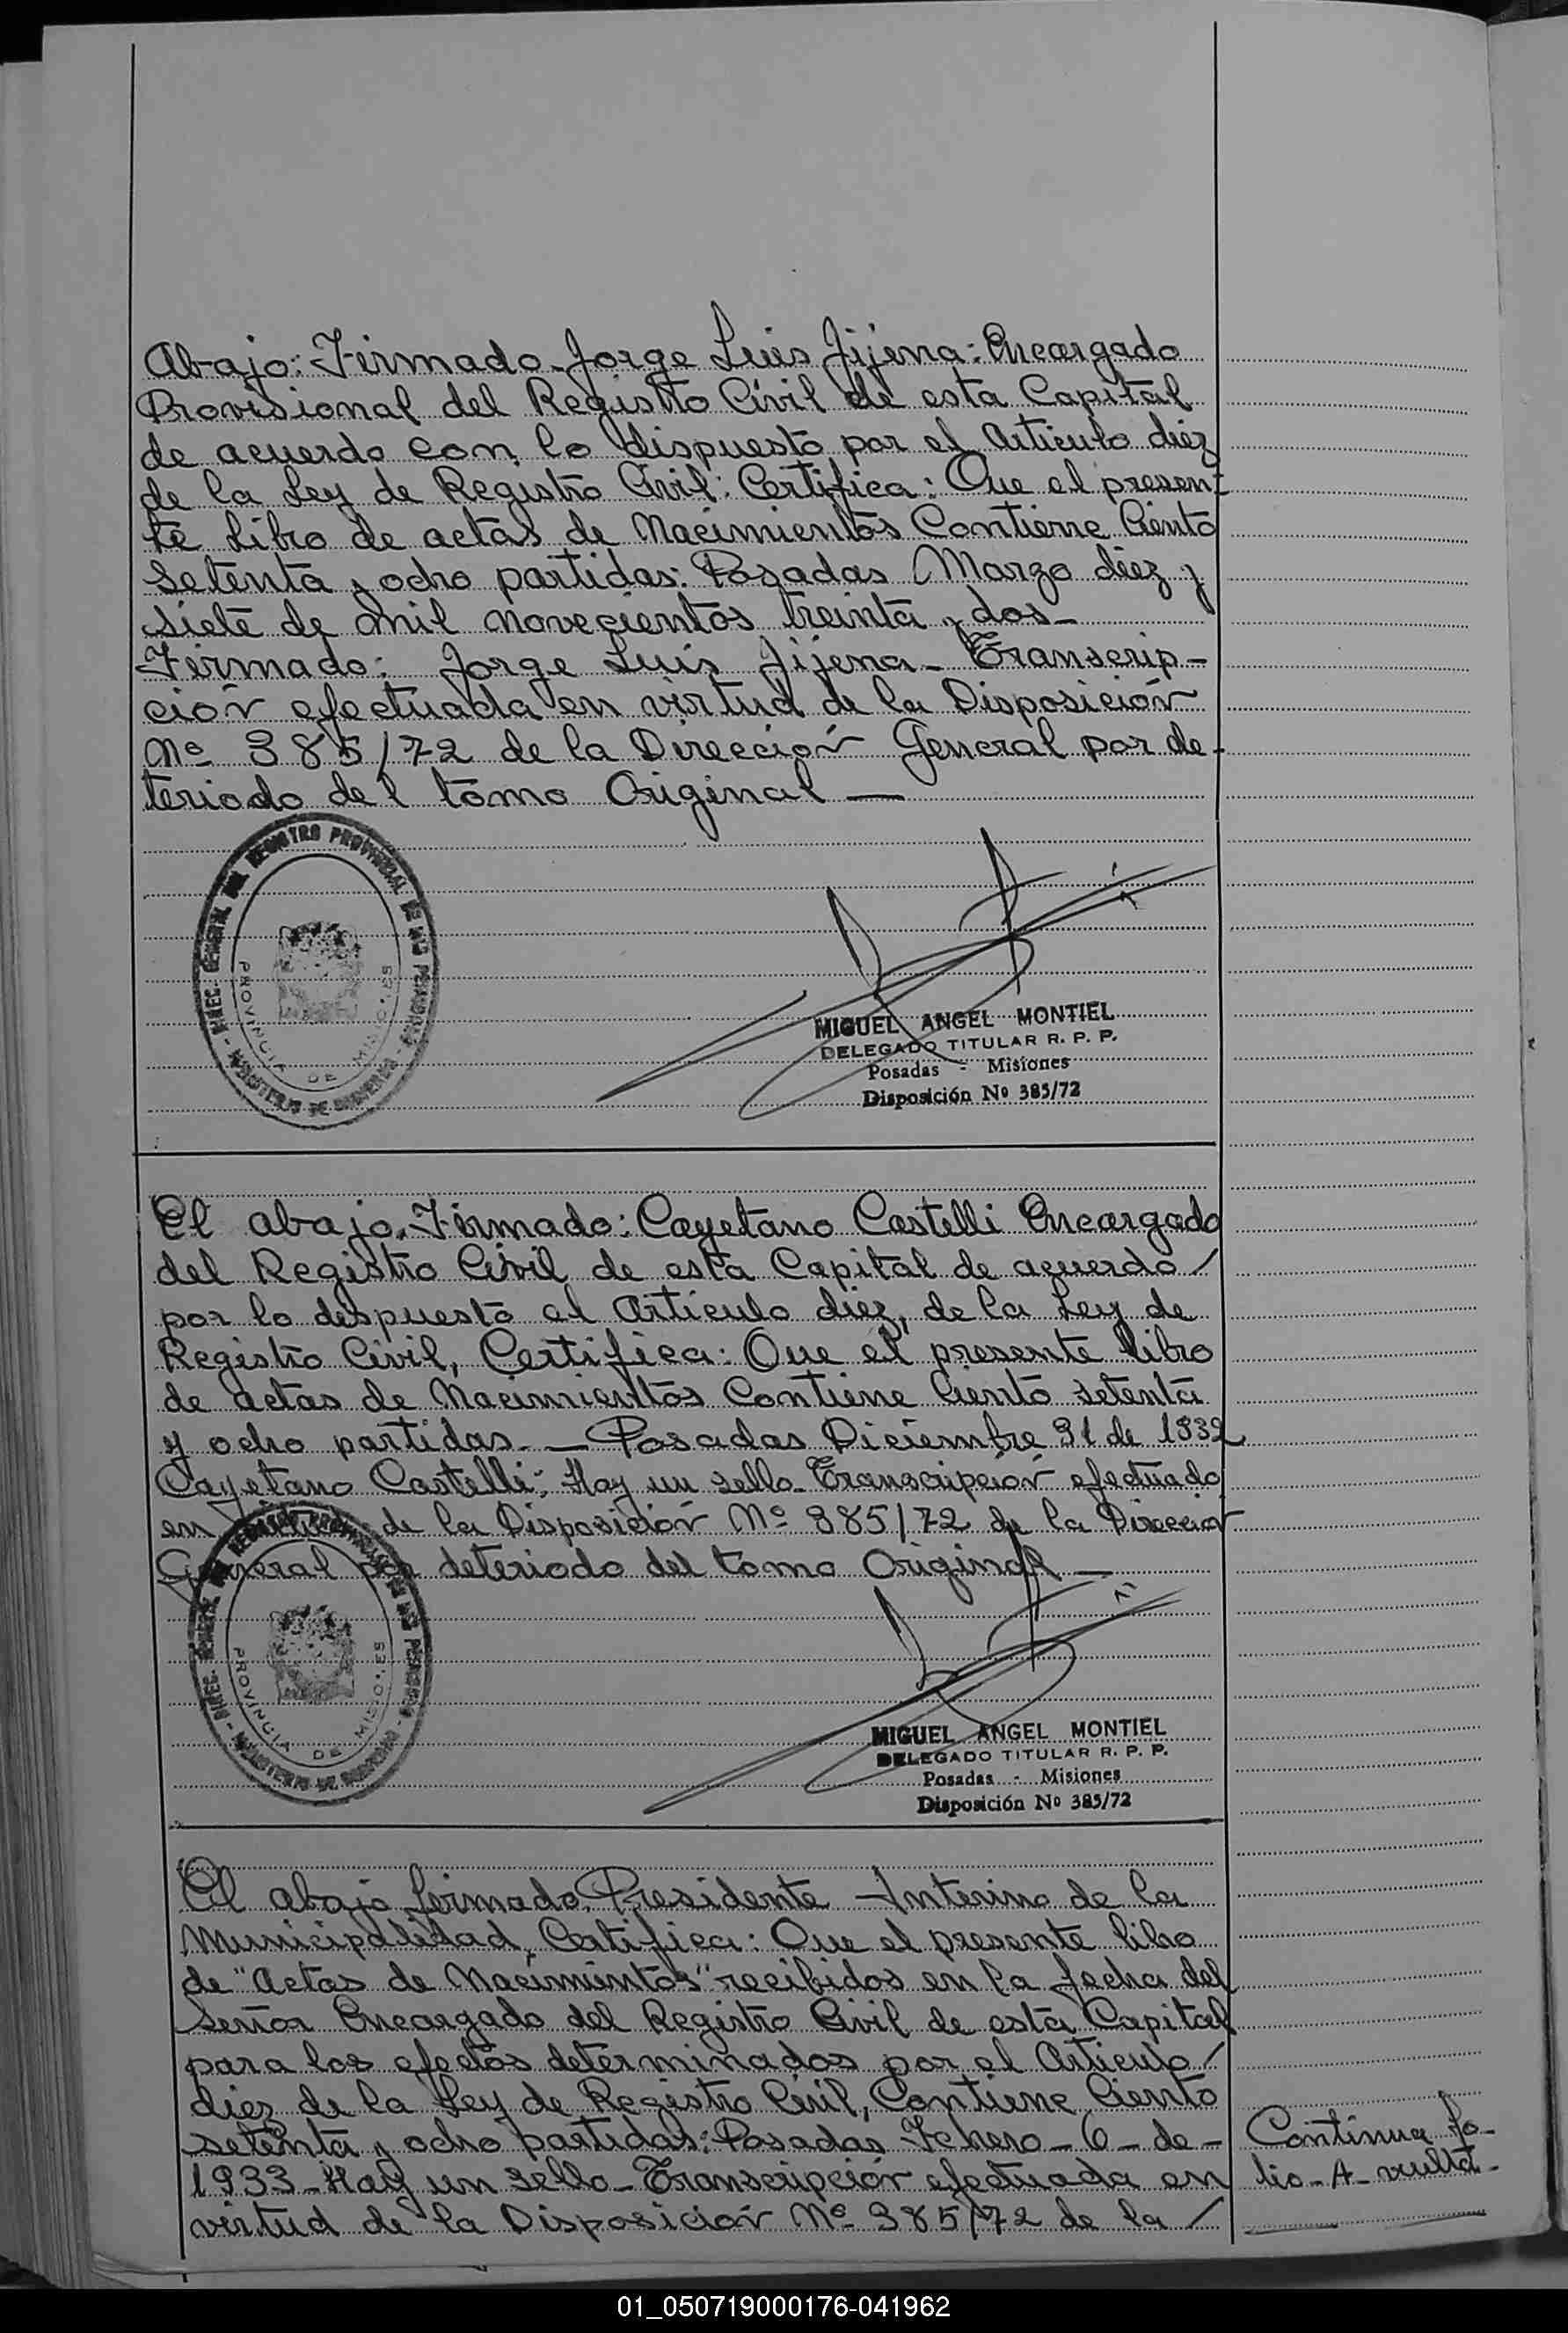 Abajo: Firmado Jorge Luis Jijena: Encargado
Provisional del Registro Civil de esta Capital
de acuerdo con lo dispuesto por el Artículo diez
de la Ley de Registro Civil: Certifica: Que el presen-
te Libro de actas de Nacimientos Contiene Ciento
setenta y ocho partidas: Posadas Marzo diez y
siete de mil novecientos treinta y dos-
Firmado: Jorge Luis Jijena - Transcrip-
ción efectuada en virtud de la Disposición
Nº 385/72 de la Dirección General por de-
teriodo del tomo Original —
DIREC. GENERAL DEL REGISTRO PROVINCIAL DE LAS PERSONAS - MINISTERIO DE GOBIERNO -
PROVINCIA DE MISIONES
MIGUEL ANGEL MONTIEL
DELEGADO TITULAR R. P. P.
Posadas - Misiones
Disposición Nº 385/72
El abajo Firmado: Cayetano Castelli Encargado
del Registro Civil de esta Capital de acuerdo /
por lo dispuesto al Artículo diez, de la Ley de
Registro Civil, Certifica: Que el presente libro
de actas de Nacimientos Contiene Ciento setenta
y ocho partidas. — Posadas Diciembre 31 de 1932
Cayetano Castelli: Hay un sello. Transcripción efectuado
en de la Disposición Nº 385/72 de la Dirección
General por deteriodo del tomo Original —
DIREC. GENERAL DEL REGISTRO PROVINCIAL DE LAS PERSONAS - MINISTERIO DE GOBIERNO -
PROVINCIA DE MISIONES
MIGUEL ANGEL MONTIEL
DELEGADO TITULAR R. P. P.
Posadas - Misiones
Disposición Nº 385/72
El abajo firmado Presidente Interino de la
Municipalidad, Certifica: Que el presente libro
de "Actas de Nacimientos" recibidos en la fecha del
Señor Encargado del Registro Civil de esta Capital
para los efectos determinados por el Artículo /
diez de la Ley de Registro Civil, Contiene Ciento
setenta y ocho partidas: Posadas Febrero - 6 - de -
1933 - Hay un sello - Transcripción efectuada en
virtud de la Disposición Nº 385/72 de la /
Continua fo-
lio - A - vuelta -
01_050719000176-041962